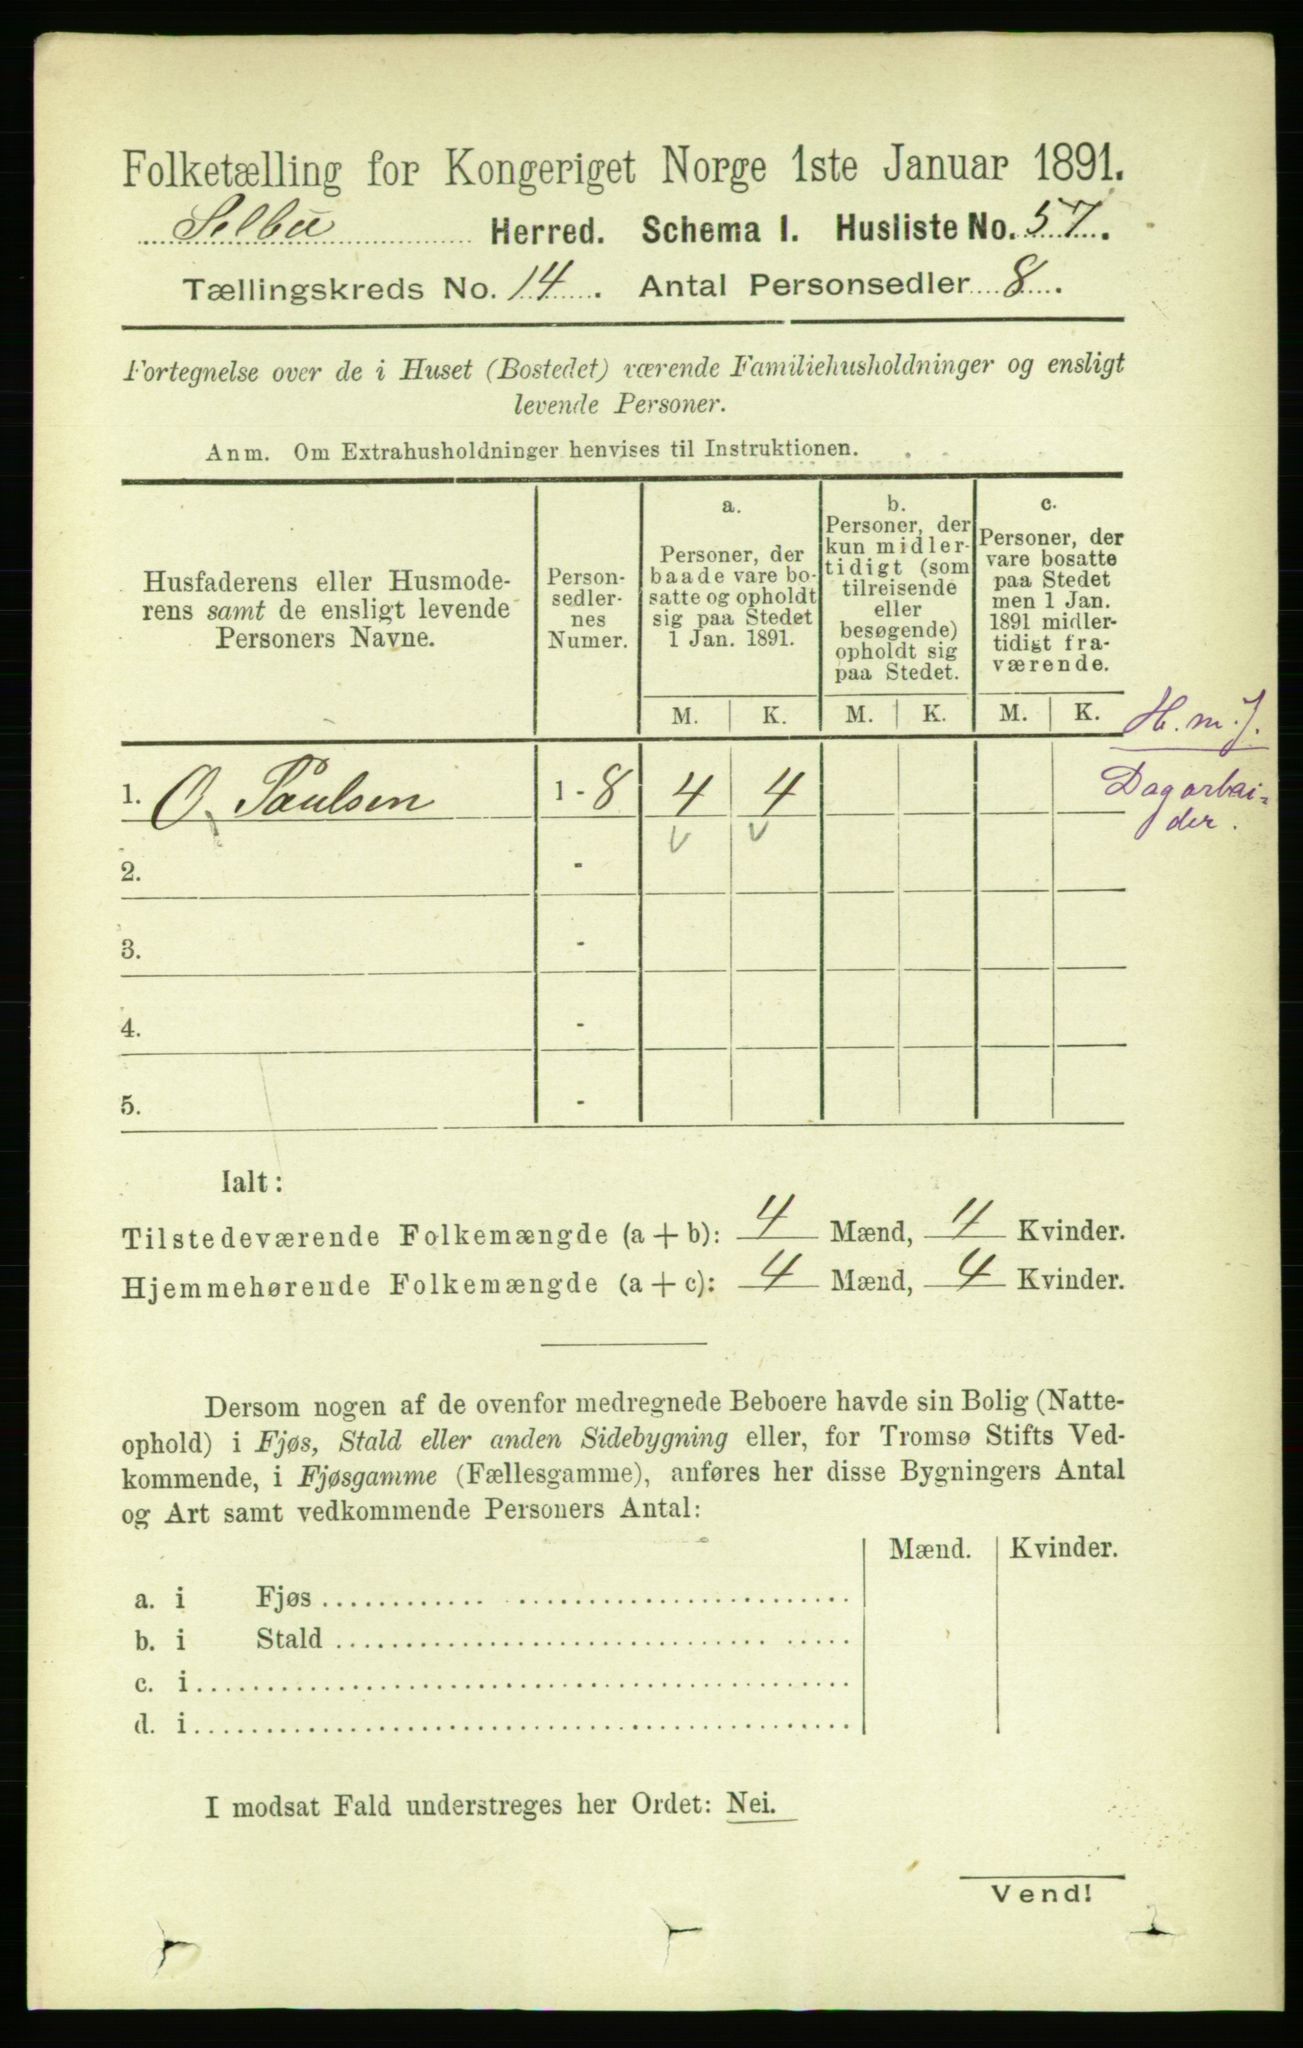 Folketælling for Kongeriget Norge 1ste Januar 1891.
Selbu Herred. Schema I. Husliste No. 57.
Tællingskreds No. 14. Antal Personsedler 8.
Fortegnelse over de i Huset (Bostedet) værende Familiehusholdninger og ensligt
levende Personer.
Anm. Om Extrahusholdninger henvises til Instruktionen.
Husfaderens eller Husmode-
rens samt de ensligt levende
Personers Navne.
Person-
sedler-
nes
Numer.
a.
Personer, der
baade vare bo-
satte og opholdt
sig paa Stedet
1 Jan. 1891.
b.
Personer, der
kun midler-
tidigt (som
tilreisende
eller
besøgende)
opholdt sig
paa Stedet.
c.
Personer, der
vare bosatte
paa Stedet
men 1 Jan.
1891 midler-
tidigt fra-
værende.
M. K. M. K. M. K.
H. m. J.
Dagarbai-
der.
1. O. Paulsen 1-8 4 4
2. -
3. -
4. -
5. -
Ialt:
Tilstedeværende Folkemængde (a+b): 4 Mænd, 4 Kvinder.
Hjemmehørende Folkemængde (a+c): 4 Mænd, 4 Kvinder.
Dersom nogen af de ovenfor medregnede Beboere havde sin Bolig (Natte-
ophold) i Fjøs, Stald eller anden Sidebygning eller, for Tromsø Stifts Ved-
kommende, i Fjøsgamme (Fællesgamme), anføres her disse Bygningers Antal
og Art samt vedkommende Personers Antal:
Mænd. Kvinder.
a. i Fjøs
b. i Stald
c. i
d. i
I modsat Fald understreges her Ordet: Nei.
Vend!